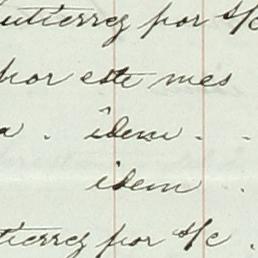 utierrez por s/c
por este mes
a . idem . .
idem .
tierrez por s/c .